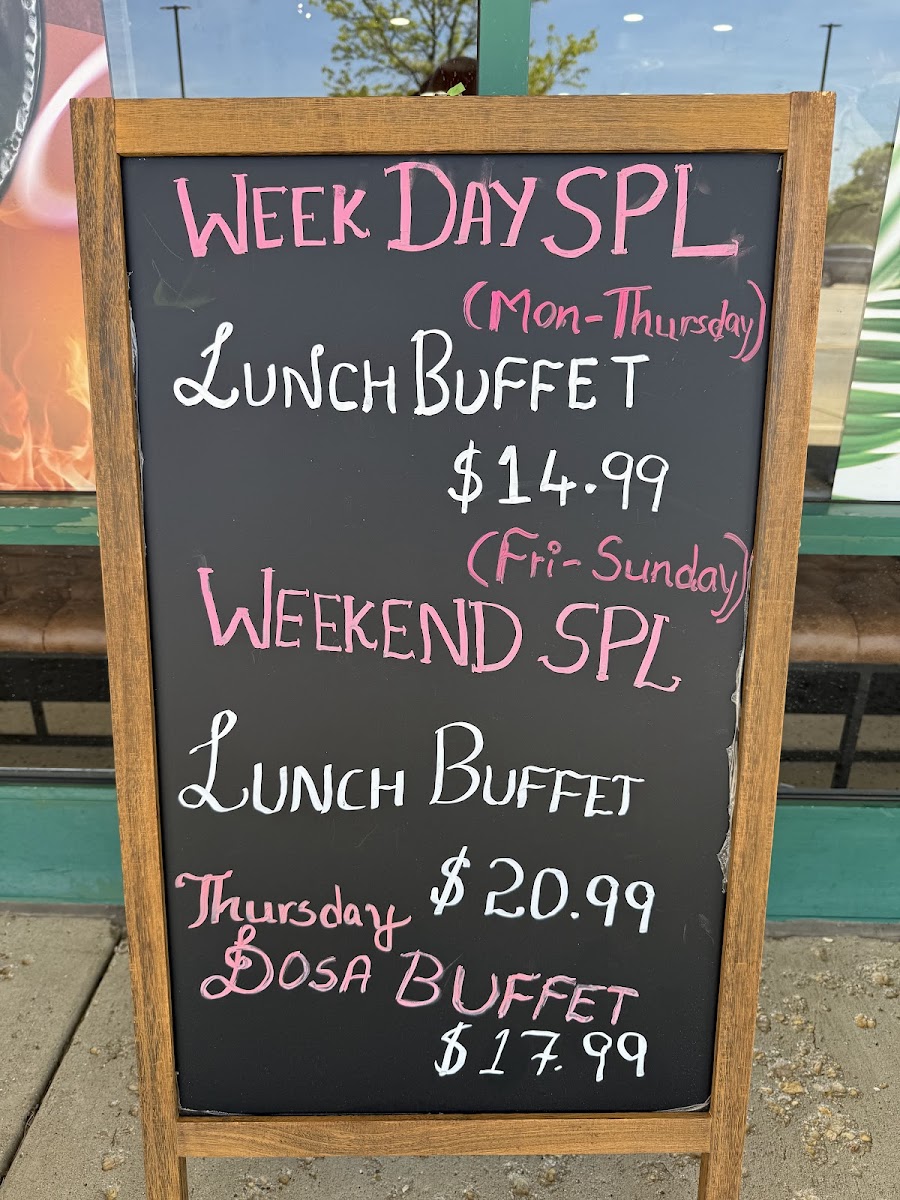 WEEK DAY SPL
(Mon-Thursday)
LUNCH BUFFET
$14.99
(Fri-Sunday)
WEEKEND SPL
LUNCH BUFFET
$20.99
Thursday
DOSA BUFFET
$17.99